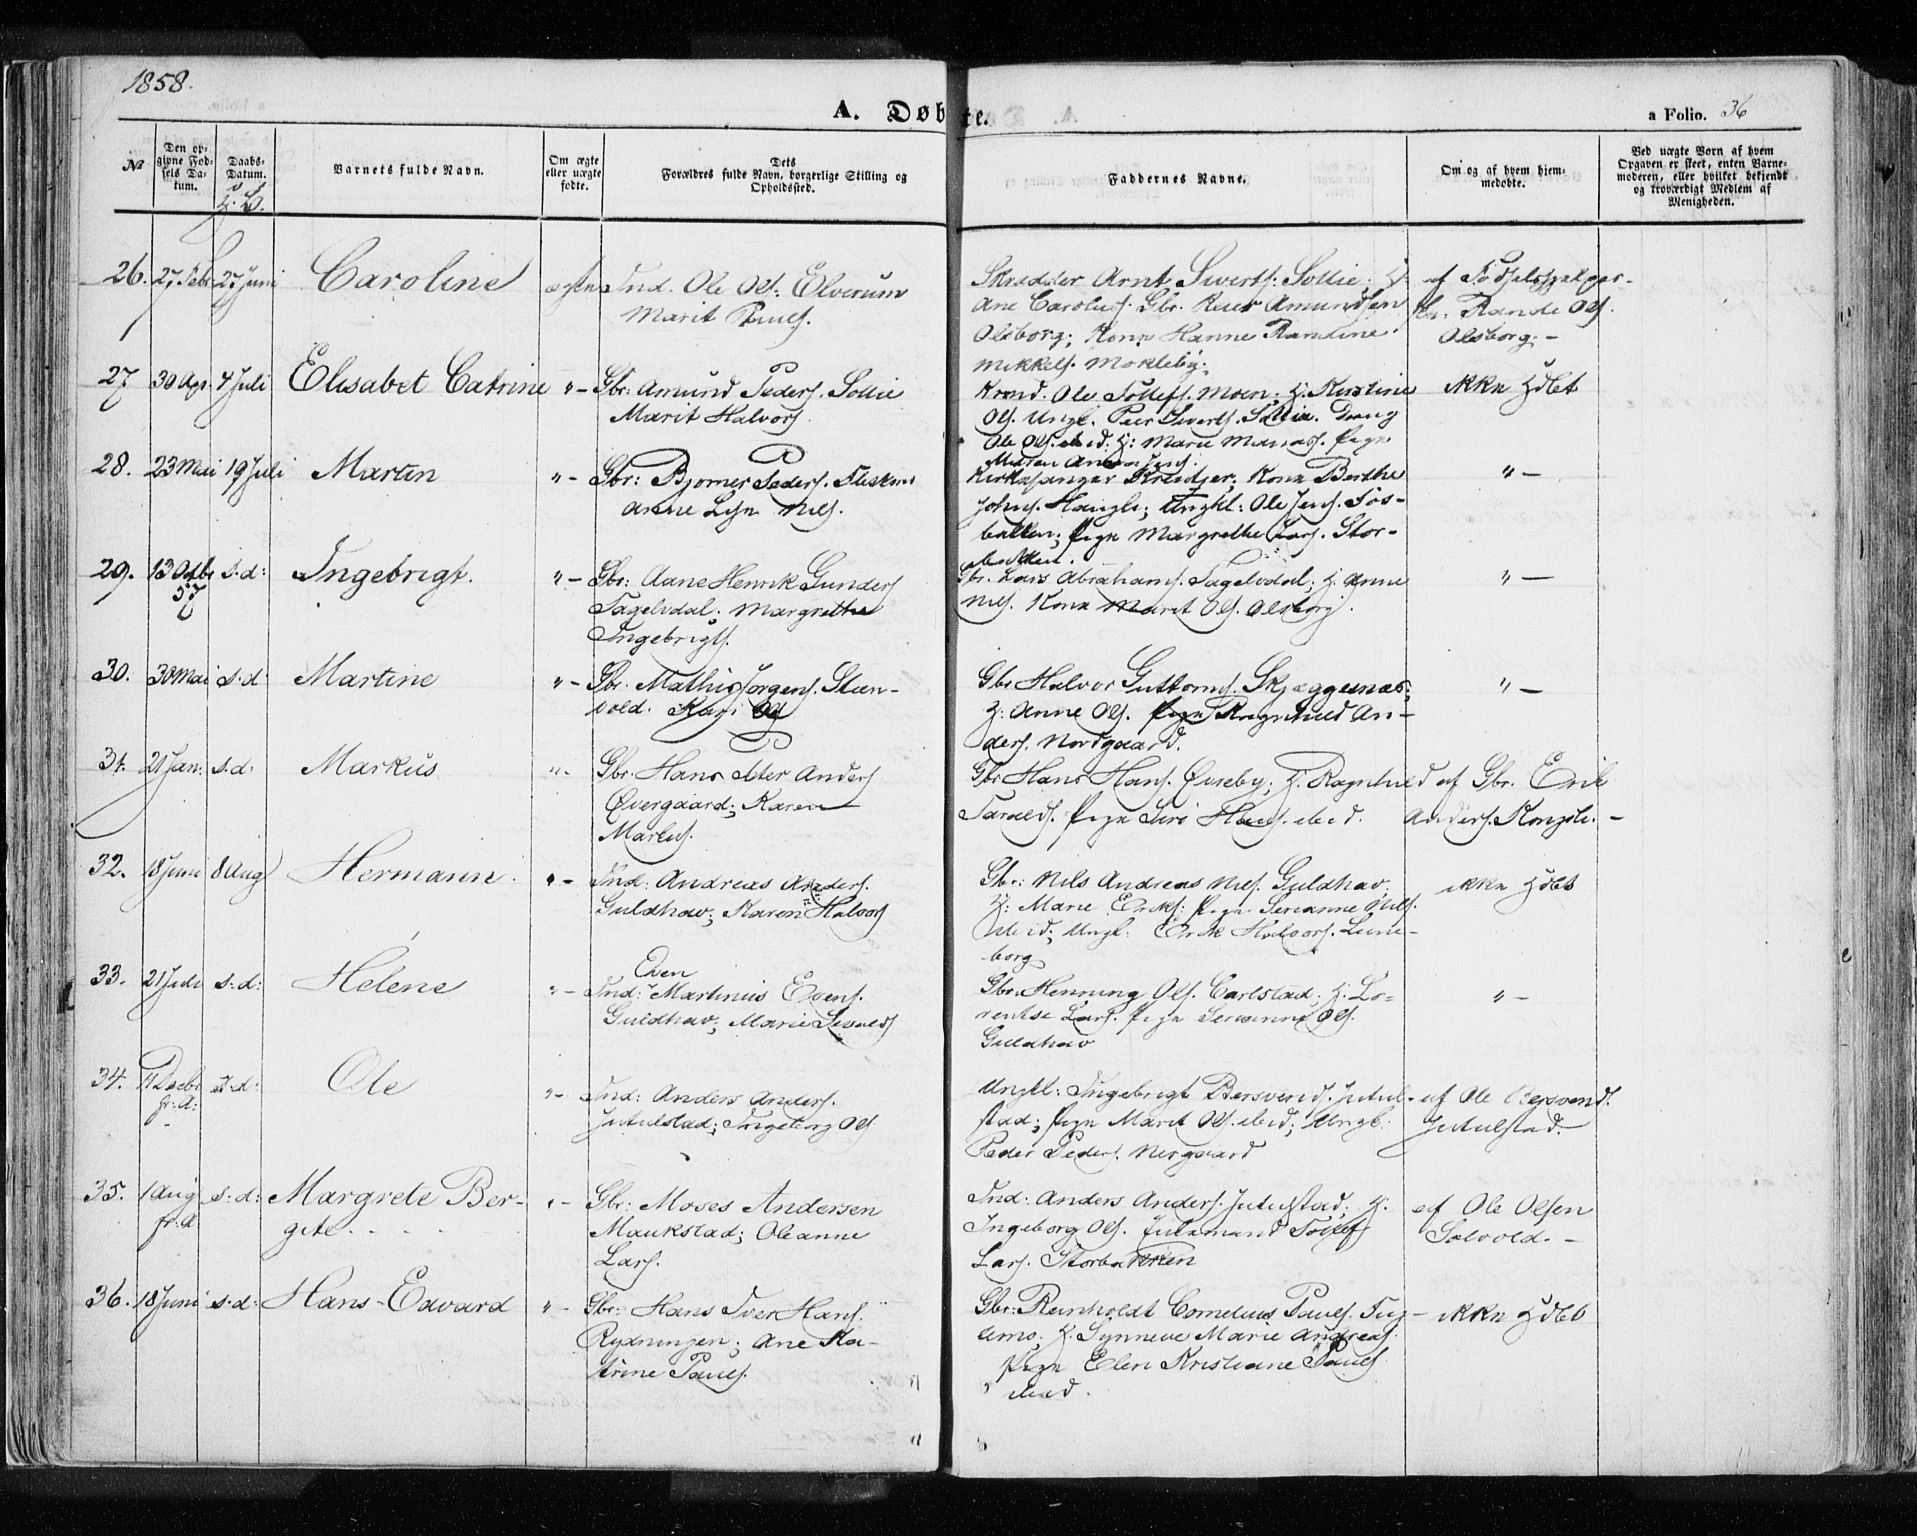 1858.
A. Døbte.
a Folio. 36
№
Den op-
givne Fød-
sels Da-
tum.
Daabs-
Datum.
Barnets fulde Navn.
Om ægte
eller uægte
fødte.
Dets
Forældres fulde Navn, borgerlige Stilling og
Opholdssted.
Faddernes Navne.
Om og af hvem hjem-
medøbte.
Ved uægte Børn af hvem
Opgaven er skeet, enten Barne-
moderen, eller hvilket bekjendt
og troværdigt Medlem af
Menigheden.
26. 27 Febr 27 Juni Caroline ægte Ind. Ole Ols: Elverum
Marit Pauls.
Skrædder Arnt Siverts: Sollie; H:
Ane Carolus. Gbr. Peder Amundsen
Olsborg; Kone Hanne Randine
Mikkels. Mokleby.
af Fødselshjelper-
Rande Ols.
Olsborg. -
27 30 Apr. 4 Juli Elisabet Catrine " - Gbr: Amund Peders. Sollie
Marit Halvors.
Ole Tollefs. Moen; H. Kirstine
Ols. Ungk. Peer Siverts. Sollie. Dreng
Ole Ols. ibid. H: Marie Pige
Maren Anna Jens.
ikke Hdbt
28. 23 Mai 19 Juli Marten " - Gbr: Bjørner Peders. Fleskmo
Anne Lisa Nils.
Kirkesanger Kone Berthe
Johns. Haugli; Ungkl: Ole Jens. Fos-
bakken; Pige Margrethe Lars. Stor-
bakken.
" -
29. 13 Octbr 57 s.d: Ingebrigt. " - Gbr: Aane Henrik Gunders
Tagelvdal; Margrethe
Ingebrigts.
Gbr. Lars Abrahams. Tagelvdal; H. Anne
Nils. Kone Maret Ols. Olsborg.
" -
30. 30 Mai s.d: Martine " - Gbr. Mathis Jørgens. Steen-
vold. Kari Ols
Gbr Halvor Guttorms. Skjæggenæs;
H: Anne Ols. Pige Ragnhild An-
ders. Nordgaard.
" -
31. 21 Jan: s.d: Markus " - Gbr. Hans Peter Anders
Øvergaard; Karen
Markus.
Gbr Hans Hans. Øvreby; H. Ragnhild
Taralds. Pige Siri Hans. ibid.
af Gbr. Erik
Anders. Kongsli. -
32. 18 Juni 8 Aug Hermann " - Ind: Andreas Anders.
Guldhav; Karen Halvors
Gbr: Nils Andreas Nils. Guldhav;
H: Marie Eriks: Pige Serianne Nils.
ibid; Ungk: Erik Halvors. Lune-
borg
ikke Hdbt
33. 21 Juli s.d: Helene " - Ind: Even Martinius Evens.
Guldhav; Marie Sivers
Gbr: Henning Ols. Carlstad; H: Lo-
rentse Lars. Pige Serianne Ols.
Guldhav
" -
34. 11 Decbr fr. A: s.d: Ole " - Ind: Anders Anders.
Jutulstad; Ingeborg Ols
Ungkl: Ingebrigt Bersvends. Jutul-
stad; Pige Marit Ols. ibid; Ungk:
Peder Peders. Nergaard
af Ole Bersvends.
Jutulstad.
35. 1 Aug fr. A s:d: Margrete Ber-
gite. . . . " - Gbr: Moses Andersen
Maukstad; Oleanne
Lars.
Ind: Anders Anders. Jutulstad; H:
Ingeborg Ols. Tollef
Lars. Storbakken
af Ole Olsen
Solvold. -
36. 18 Juni s.d: Hans-Edvard " - Gbr: Hans Iver Hans.
Rydningen; Ane Ka-
trine Pauls.
Gbr: Reinholdt Cornelius Pauls. Fug-
lemo; H. Synneve Marie Andreas.
Pige Elen Kristiane Pauls
ibid.
ikke Hdbt